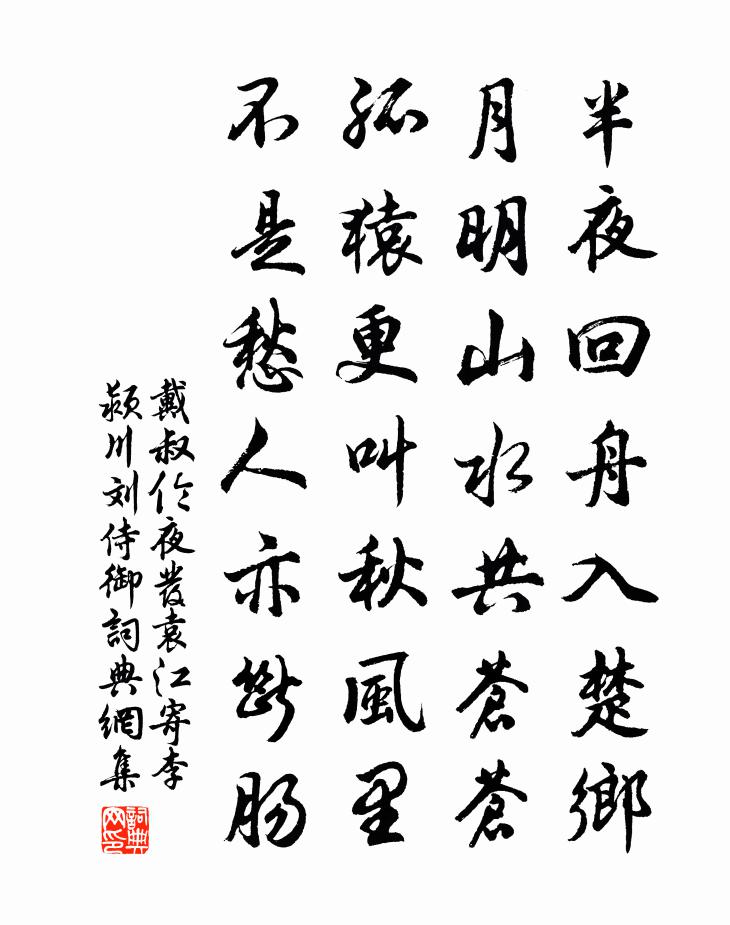 半夜回舟入楚鄉
月明山水共蒼蒼
孤猿更叫秋風里
不是愁人亦斷腸
戴叔伦夜發袁江寄李
颍川刘侍御詞典網集
詞典
网印